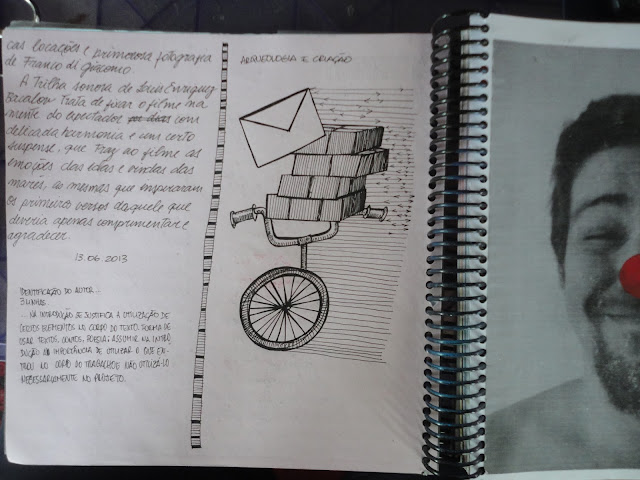 cas locações e primorosa fotografia
de Franco di Giácomo.
A Trilha sonora de Luis Enriquez
Bacalov trata de fixar o filme na
mente do espectador com
delicada harmonia e um certo
suspense, que traz ao filme as
emoções das idas e vindas das
marés, as mesmas que inspiraram
os primeiros versos daquele que
deveria apenas cumprimentar e
agradecer.
13.06.2013
IDENTIFICAÇÃO DO AUTOR...
3 LINHAS
... NA INTRODUÇÃO SE JUSTIFICA A UTILIZAÇÃO DE
CERTOS ELEMENTOS NO CORPO DO TEXTO. FORMA DE
USAR TEXTOS, CONTOS, POESIA; ASSUMIR NA INTRO
DUÇÃO A IMPORTÂNCIA DE UTILIZAR O QUE EN-
TROU NO CORPO DO TRABALHO E NÃO UTILIZÁ-LO
NECESSARIAMENTE NO PROJETO.
ARQUEOLOGIA E CRIAÇÃO